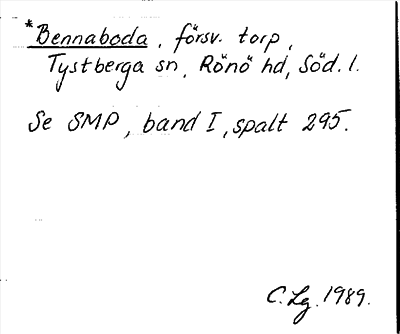 *Bennaboda, försv. torp,
Tystberga sn, Rönö hd, Söd. l.
Se SMP, band I, spalt 295.
C. Lg. 1989.